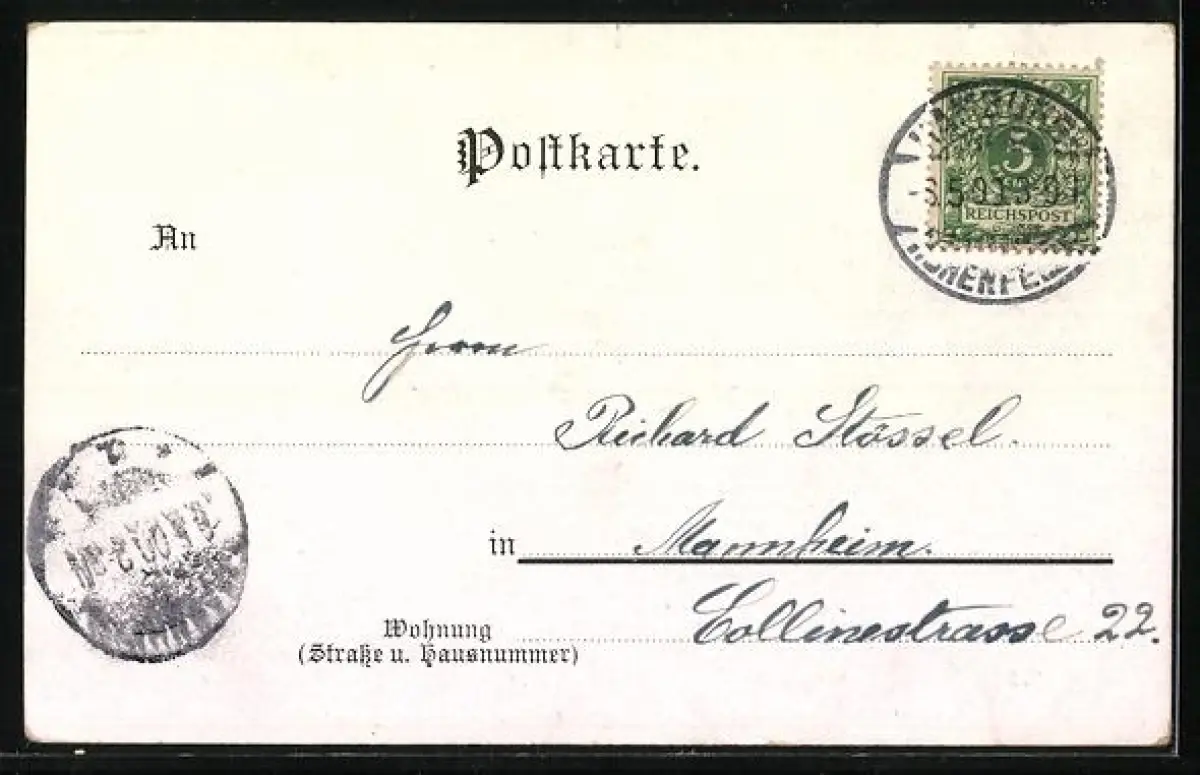 Postkarte.
5
REICHSPOST
HOHENFEL
An
Herrn
Richard Stössel.
in Mannheim.
Wohnung
(Straße u. Hausnummer)
Collinestrasse 22.